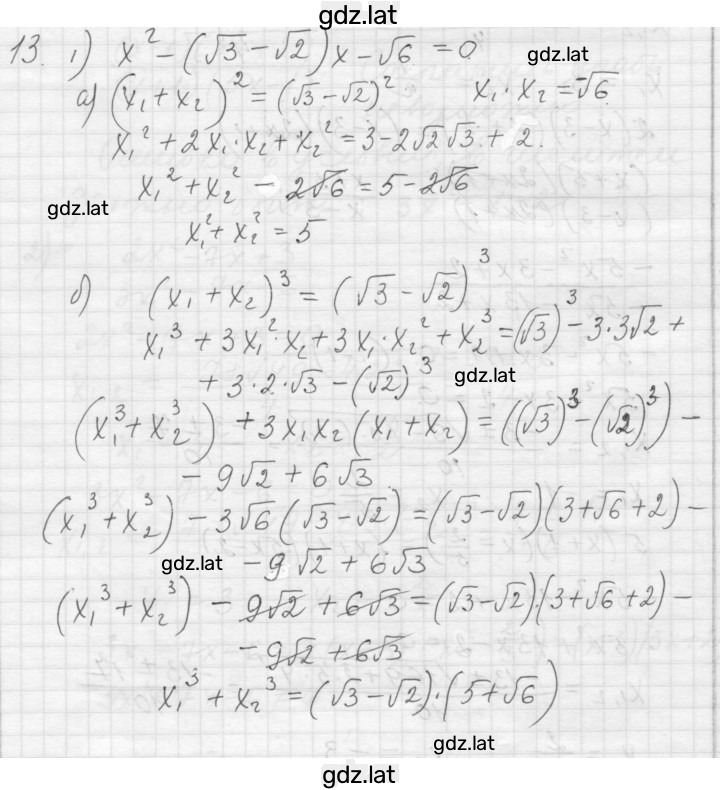 gdz.lat
13. 1) x² - (√3 - √2)x - √6 = 0
gdz.lat
а) (x₁ + x₂)² = (√3 - √2)² x₁ · x₂ = -√6
x₁² + 2x₁·x₂ + x₂² = 3 - 2√2√3 + 2.
x₁² + x₂² - 2√6 = 5 - 2√6
gdz.lat
x₁² + x₂² = 5
б) (x₁ + x₂)³ = (√3 - √2)³
x₁³ + 3x₁²·x₂ + 3x₁·x₂² + x₂³ = (√3)³ - 3·3√2 +
+ 3·2·√3 - (√2)³
gdz.lat
(x₁³ + x₂³) + 3x₁x₂(x₁ + x₂) = ((√3)³ - (√2)³) -
- 9√2 + 6√3
(x₁³ + x₂³) - 3√6(√3 - √2) = (√3 - √2)(3 + √6 + 2) -
gdz.lat
- 9√2 + 6√3
(x₁³ + x₂³) - 9√2 + 6√3 = (√3 - √2)·(3 + √6 + 2) -
- 9√2 + 6√3
x₁³ + x₂³ = (√3 - √2)·(5 + √6)
gdz.lat
gdz.lat